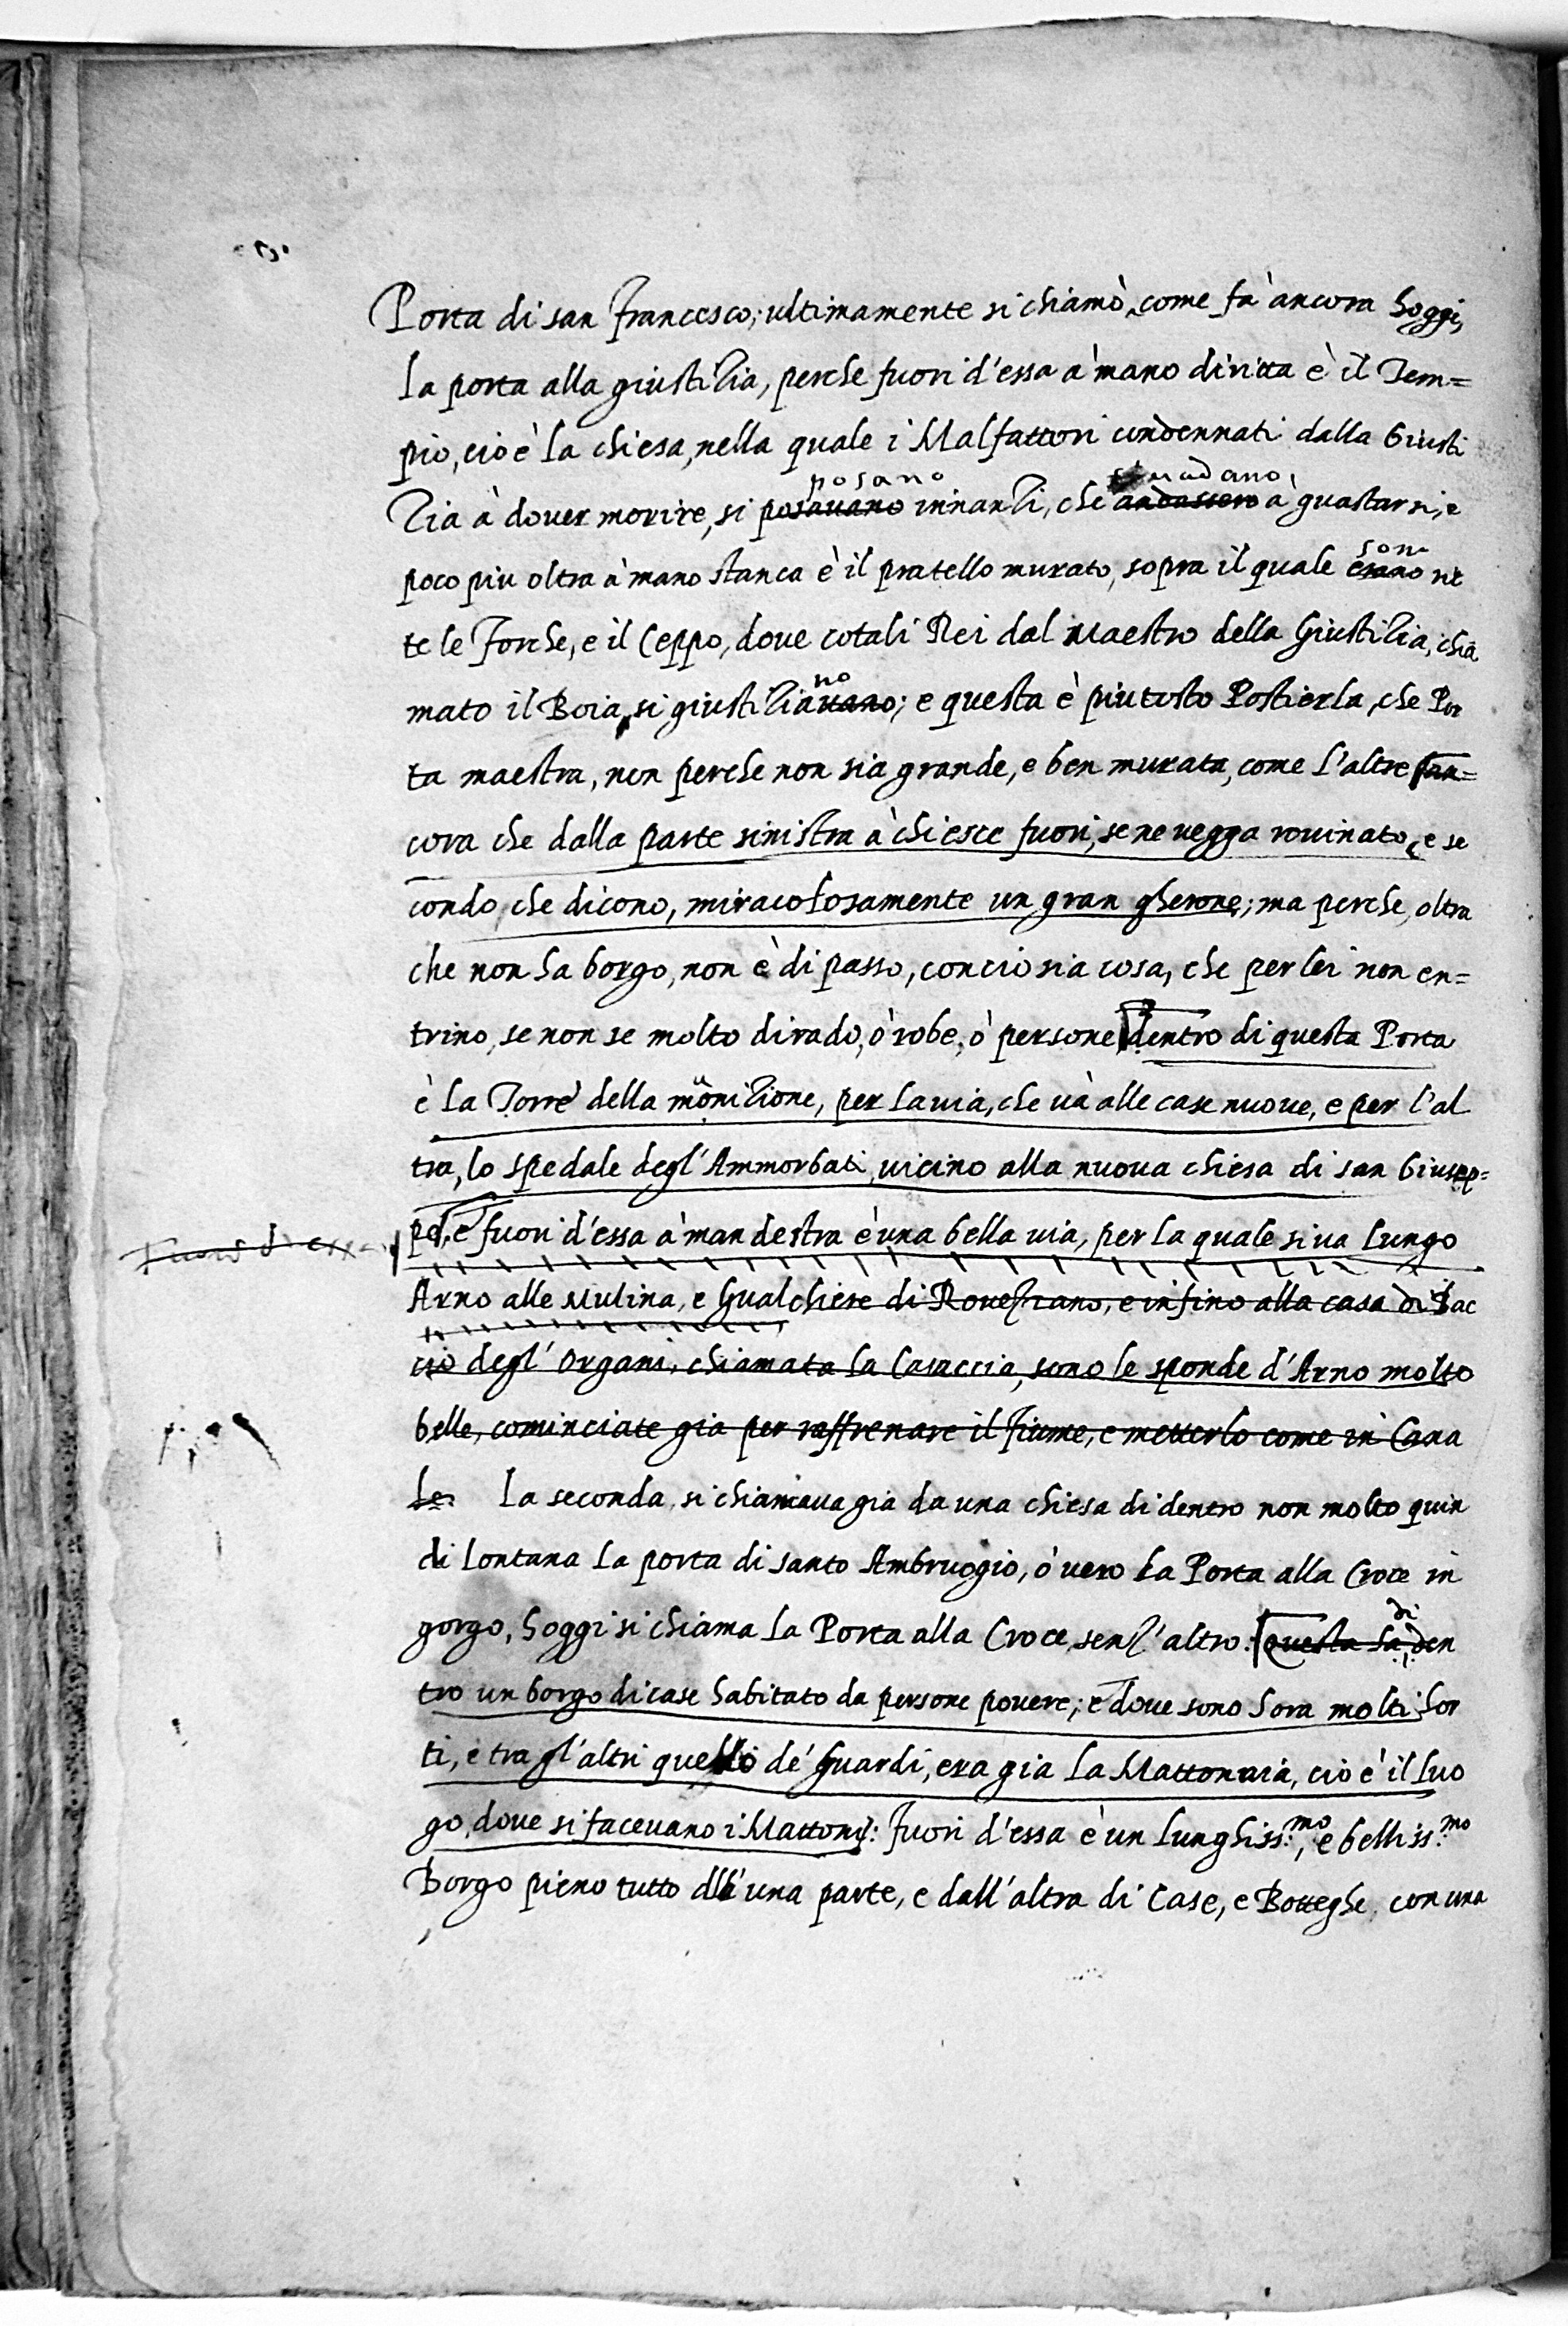 Porta di san Francesco; ultimamente si chiamò, come fa' ancora hoggi,
la porta alla giustitia, perche fuori d'essa à mano diritta è il Tem=
pio, cio è la chiesa, nella quale i Malfattori condennati dalla Giusti
posano uadano,
tia à dover morire, si posauano innanzi, che andassero à guastarsi, e
sono
poco piu oltra à mano stanca è il pratello murato, sopra il quale erano rit
te le Forche, e il Ceppo, doue cotali Rei dal Maestro della Giustitia, chia
no
mato il Boia, si giustitiauano; e questa è piu tosto Postierla, che Por
ta maestra, non perche non sia grande, e ben murata, come l'altre an=
cora che dalla parte sinistra à chi esce fuori, se ne uegga rouinato, e se
condo, che dicono, miracolosamente un gran gherone; ma perche, oltra
che non ha borgo, non è di passo, concio sia cosa, che per lei non en=
trino, se non se molto dirado, ò robe, ò persone dentro di questa Porta
è la Torre della monitione, per la uia, che uà alle case nuoue, e per l'al
tra, lo spedale degl'Ammorbati, uicino alla nuoua chiesa di san Giusep=
Fuori d'essa
pe, e fuori d'essa à man destra è una bella uia, per la quale si ua lungo
Arno alle Mulina, e Gualchiere di Rouezzano, e infino alla casa di Bac
cio degl'Organi, chiamata la Casaccia, sono le sponde d'Arno molto
belle, cominciate gia per raffrenare il Fiume, e metterlo come in Cana
le. La seconda si chiamaua gia da una chiesa di dentro non molto quin
di lontana la porta di santo Ambruogio, ò uero la Porta alla Croce in
gorgo, hoggi si chiama la Porta alla Croce senz'altro: Questa ha di den
tro un borgo di case habitato da persone pouere; e doue sono hora molti hor
ti, e tra gl'altri quello de' Guardi, era gia la Mattonaia, cio è il luo
go, doue si faceuano i Mattoni: Fuori d'essa è un lunghiss.mo, e belliss.mo
Borgo pieno tutto dall'una parte, e dall'altra di Case, e Botteghe, con una